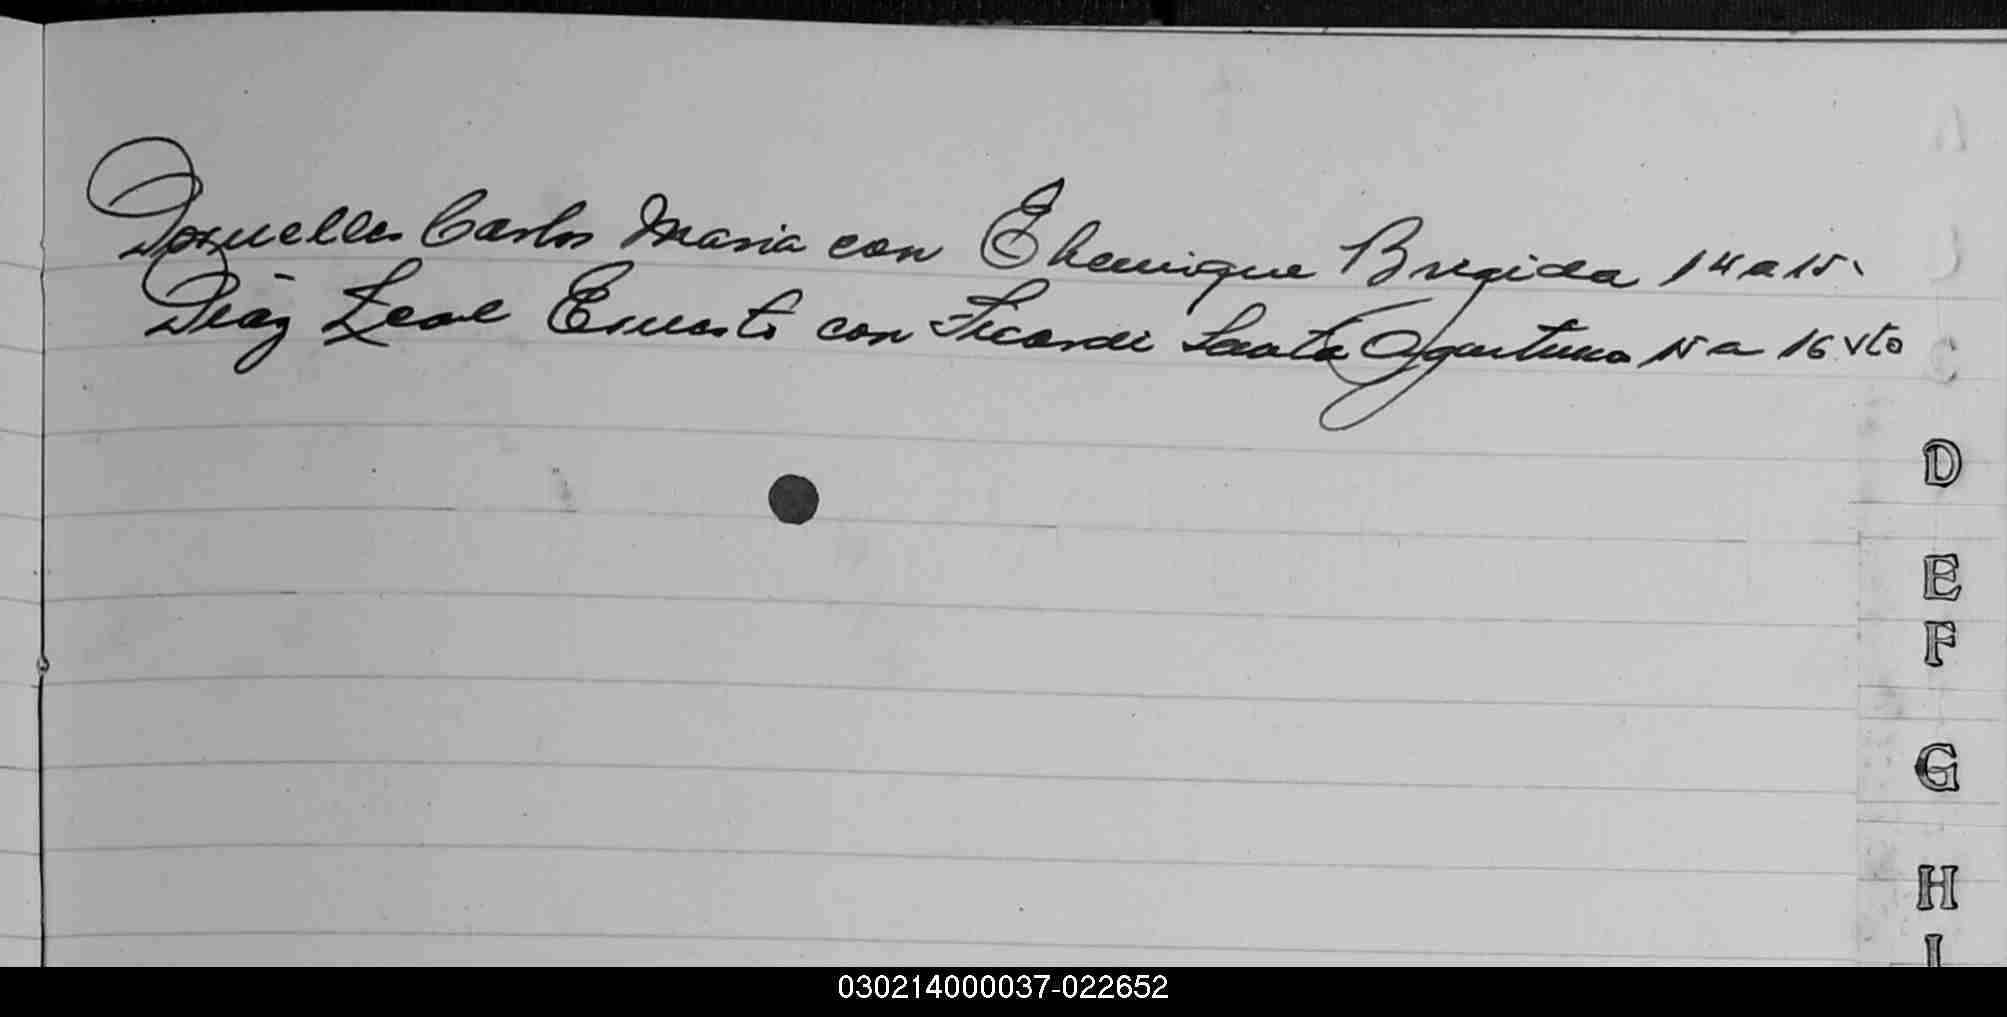 Dornelles Carlos Maria con Echenique Brigida 14 a 15
Diaz Leal Ernesto con Sicardi Santa Agustina 15 a 16 vto
D
E
F
G
H
I
030214000037-022652